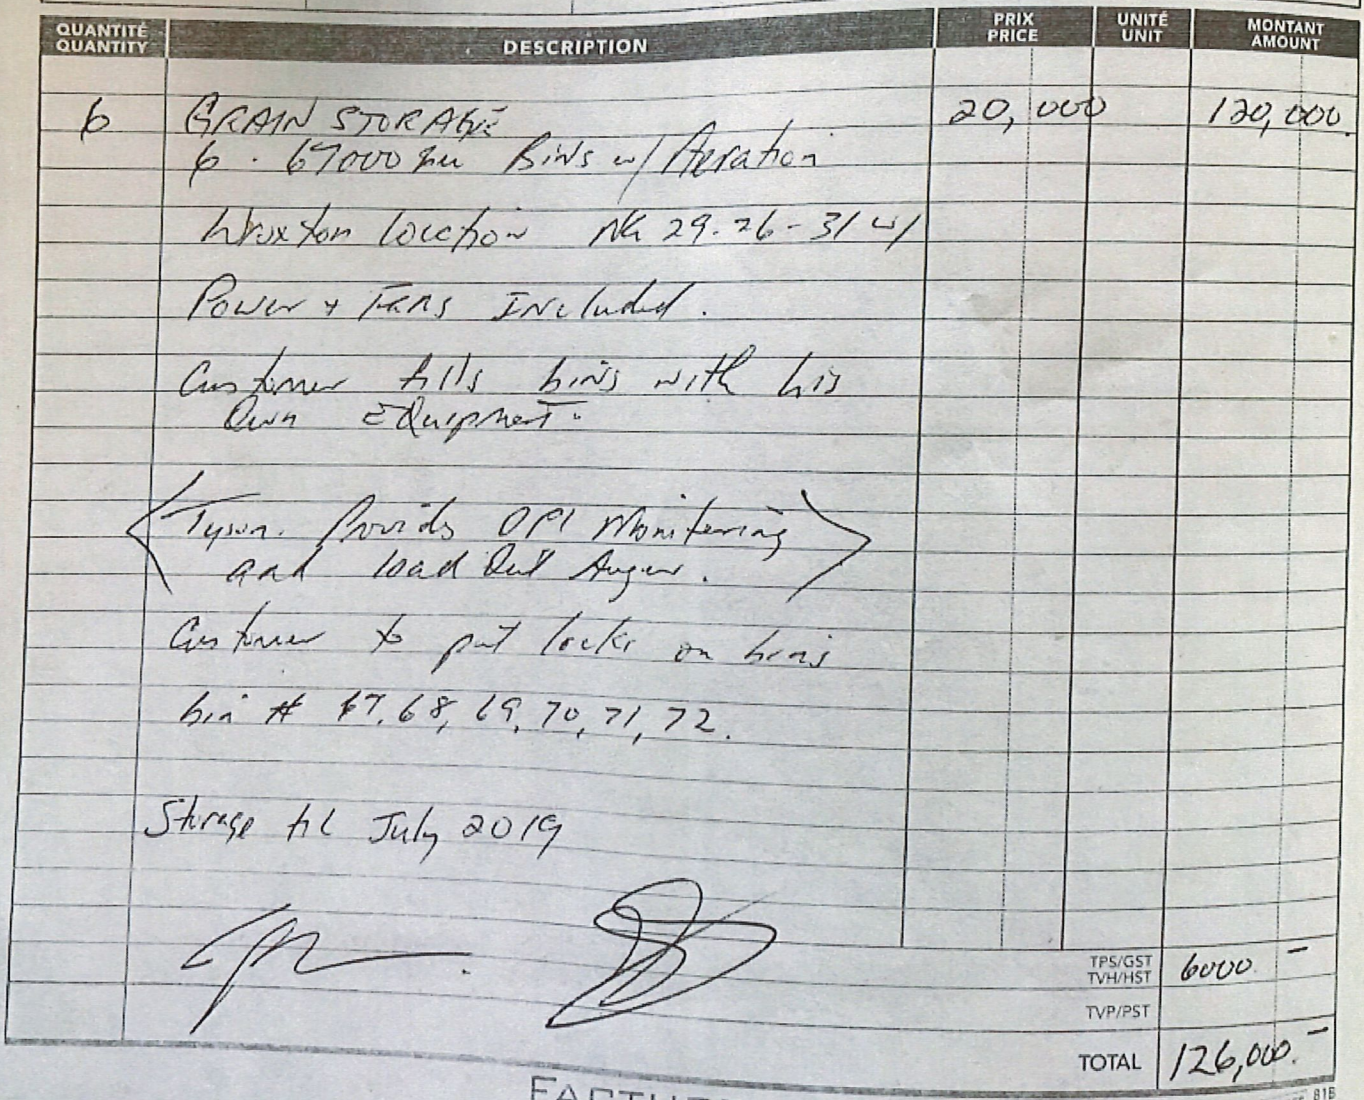 QUANTITÉ
QUANTITY
DESCRIPTION
PRIX
PRICE
UNITÉ
UNIT
MONTANT
AMOUNT
6 GRAIN STORAGE 20,000 120,000
6 - 67000 bu Bins w/ Aeration
Wroxton location NE 29-26-31 w1
Power + Fans Included.
Customer fills bins with his
Own Equipment.
Tyson. Provids OPI Monitering
and load Out Auger.
Customer to put locks on bins
bin # 67, 68, 69, 70, 71, 72.
Storage til July 2019
TPS/GST
TVH/HST 6000. –
TVP/PST
TOTAL 126,000. –
81B